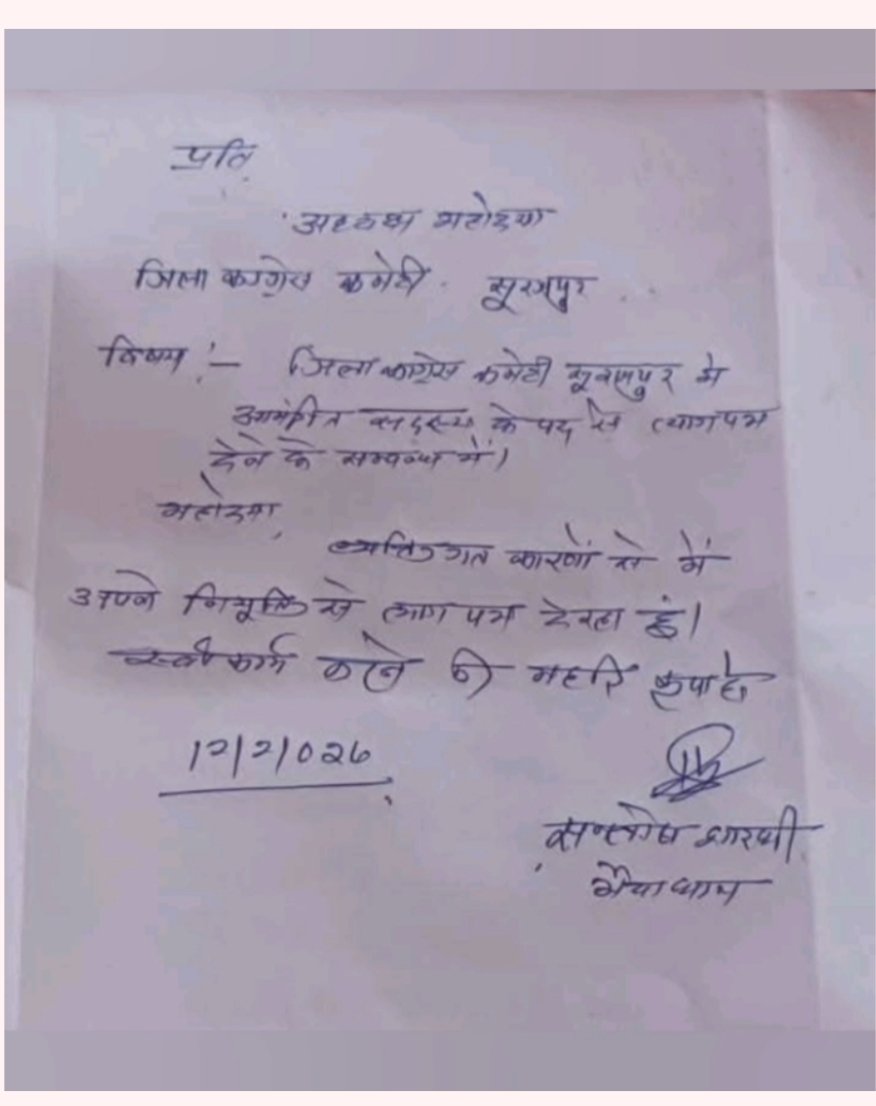 प्रति
अध्यक्ष महोदया
जिला कांग्रेस कमेटी सूरजपुर
विषय :- जिला कांग्रेस कमेटी सूरजपुर में
आमंत्रित सदस्य के पद से त्यागपत्र
देने के सम्बन्ध में।
महोदया,
व्यक्तिगत कारणों से मैं
अपने नियुक्ति से त्याग पत्र दे रहा हूं।
करने की कृपा
12/2/026
सन्तोष
भैयाथान